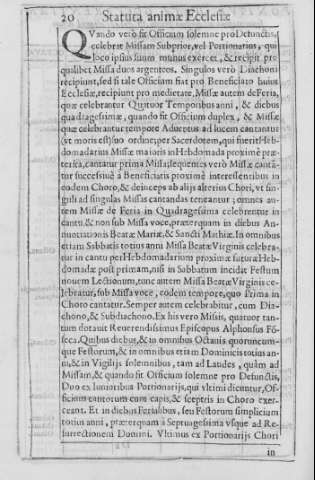 20 Statuta animæ Ecclesiæ
QVando verò fit Officium solemne pro Defunctis,
celebræ Missam Subprior, vel Portionarius, qui
loco ipsius suum munus exercet, & recipit pro
qualibet Missa duos argenteos. Singulos verò Diachoni
recipiunt, sed si tale Officium fiat pro Beneficiato huius
Ecclesiæ, recipiunt pro medietate, Missæ autem de Feria,
quæ celebrantur Quatuor Temporibus anni, & diebus
quadragesimæ, quando fit Officium duplex, & Missæ
quæ celebrantur tempore Aduentus ad lucem cantantur
(vt moris est) suo ordine, per Sacerdotem, qui fuerit Heb-
domadarius Missæ maioris in Hebdomada proximè præ-
terita, cantatur prima Missa, sequentes verò Missæ cantã-
tur successiuè à Beneficiatis proximè interessentibus in
eodem Choro, & deinceps ab alijs alterius Chori, vt sin-
guli ad singulas Missas cantandas teneantur; omnes au-
tem Missæ de Feria in Quadragesima celebrentur in
cantu, & non sub Missa voce, præterquam in diebus An-
nuntiationis Beatæ Mariæ, & Sancti Mathiæ. In omnibus
etiam Sabbatis totius anni Missa Beatæ Virginis celebra-
tur in cantu per Hebdomadarium proximæ futuræ Heb-
domadæ post primam, nisi in Sabbatum incidat Festum
nouem Lectionum, tunc autem Missa Beatæ Virginis ce-
lebratur, sub Missa voce, eodem tempore, quo Prima in
Choro cantatur. Semper autem celebrabitur, cum Dia-
chono, & Subdiachono. Ex his verò Missis, quatuor tan-
tum dotauit Reuerendissimus Episcopus Alphonsus Fõ-
seca. Quibus diebus, & in omnibus Octauis quorumcum-
que Festorum, & in omnibus etiam Dominicis totius an-
ni, & in Vigilijs solemnibus, tam ad Laudes, quàm ad
Missam, & quando fit Officium solemne pro Defunctis,
Duo ex Iunioribus Portionarijs, qui vltimi dicuntur, Of-
ficium cantorum cum capis, & sceptris in Choro exer-
ceant. Et in diebus Ferialibus, seu Festorum simplicium
totius anni, præterquam à Septuagesima vsque ad Re-
surrectionem Domini. Vltimus ex Portionarijs Chori
in